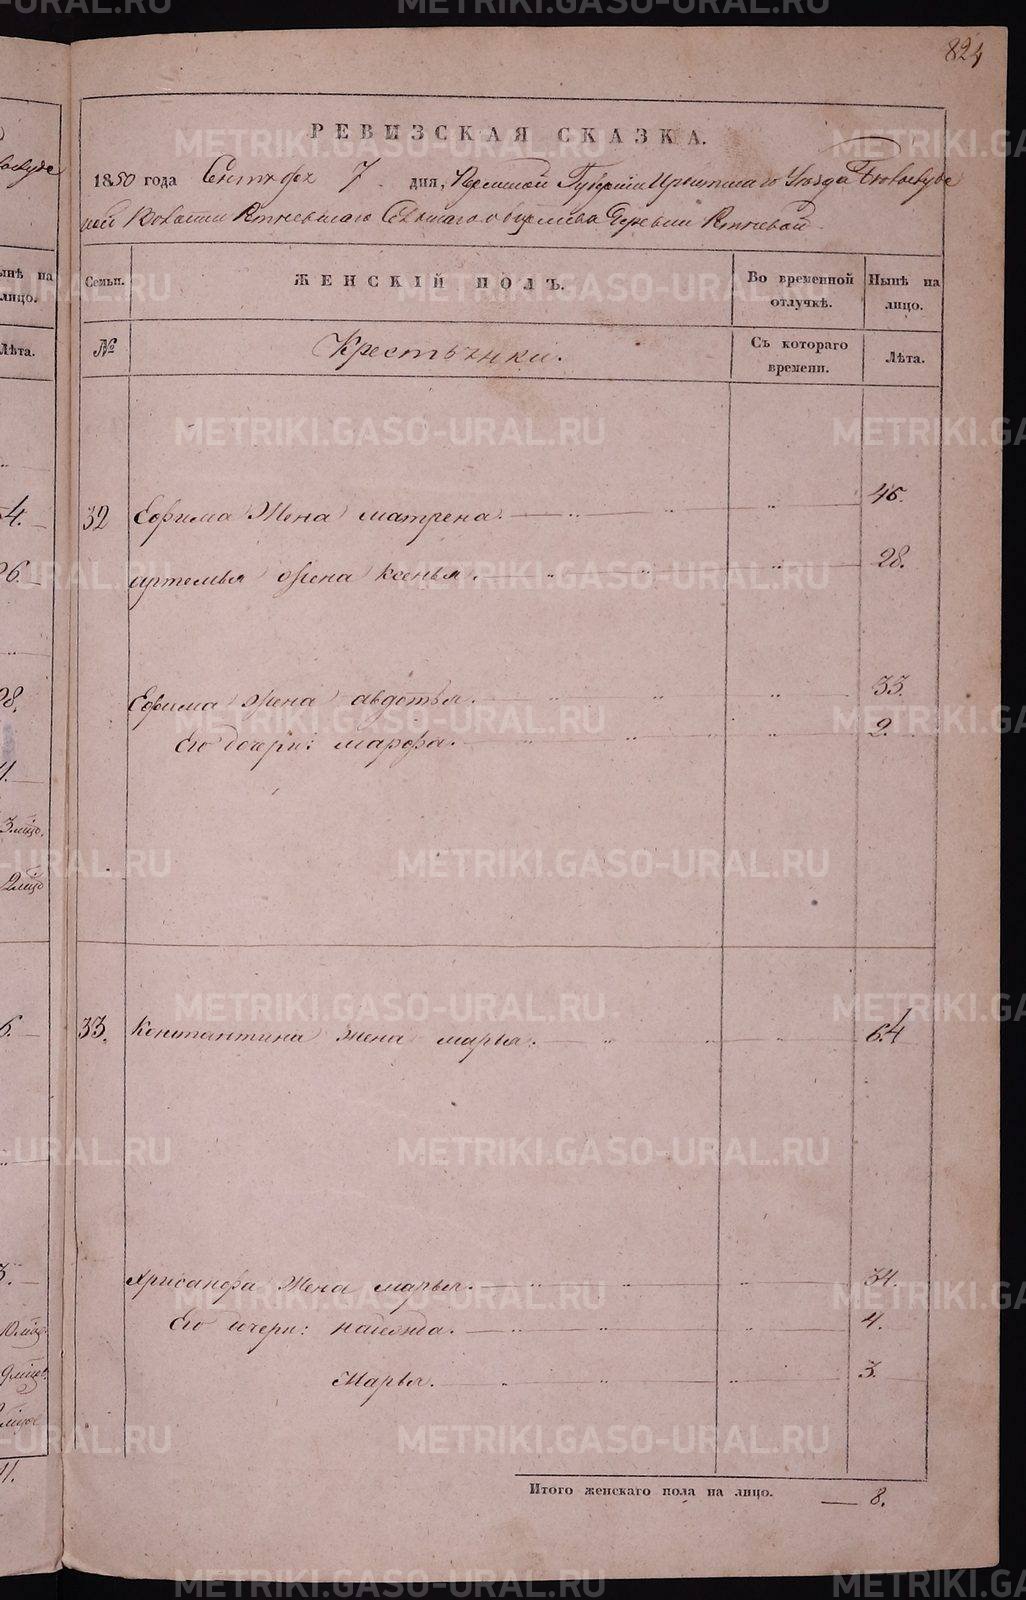 824
РЕВИЗСКАЯ СКАЗКА.
1850 года Сентября 7 дня, Пермской Губернии Ирбитскаго Уезда
ной Волости Сельскаго общества Деревни
Семьи. ЖЕНСКІЙ ПОЛЪ. Во временной отлучкѣ. Нынѣ на лицо.
№ Крестьянки. Съ котораго времени. Лѣта.
32 Ефима Жена матрена. 46.
артемья жена ксенья. 28.
Ефима жена авдотья. 33.
Его дочери: марфа. 2.
33. Константина жена марья. 64
Хрисанфа Жена марья. 34.
Его дчери: надежда. 4.
Марья. 3.
Итого женскаго пола на лицо. — 8.
ынѣ на
лицо.
Лѣта.
METRIKI.GASO-URAL.RU